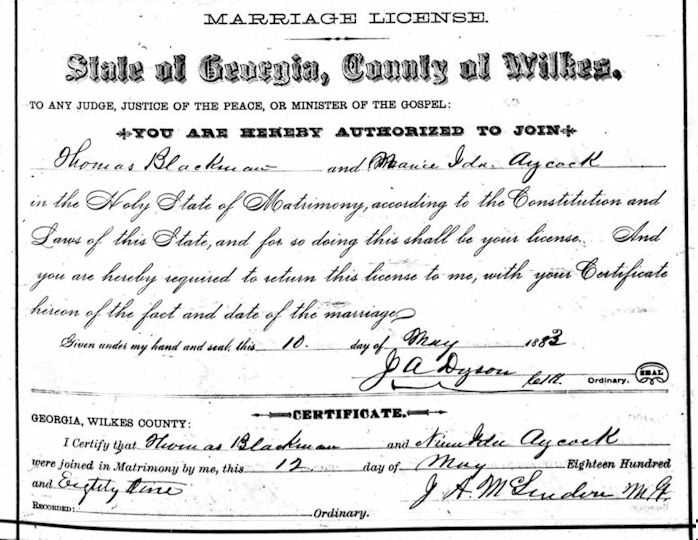 MARRIAGE LICENSE.
State of Georgia, County of Wilkes.
TO ANY JUDGE, JUSTICE OF THE PEACE, OR MINISTER OF THE GOSPEL:
YOU ARE HEREBY AUTHORIZED TO JOIN
Thomas Blackman and Ida Aycock
in the Holy State of Matrimony, according to the Constitution and
Laws of this State, and for so doing this shall be your license. And
you are hereby required to return this license to me, with your Certificate
hereon of the fact and date of the marriage
Given under my hand and seal, this 10 day of May 1883
J A Dyson Ordinary. SEAL
CERTIFICATE.
GEORGIA, WILKES COUNTY:
I Certify that Thomas Blackman and Ida Aycock
were joined in Matrimony by me, this 12 day of May Eighteen Hundred
and Eighty
J. A. M. G.
RECORDED: Ordinary.